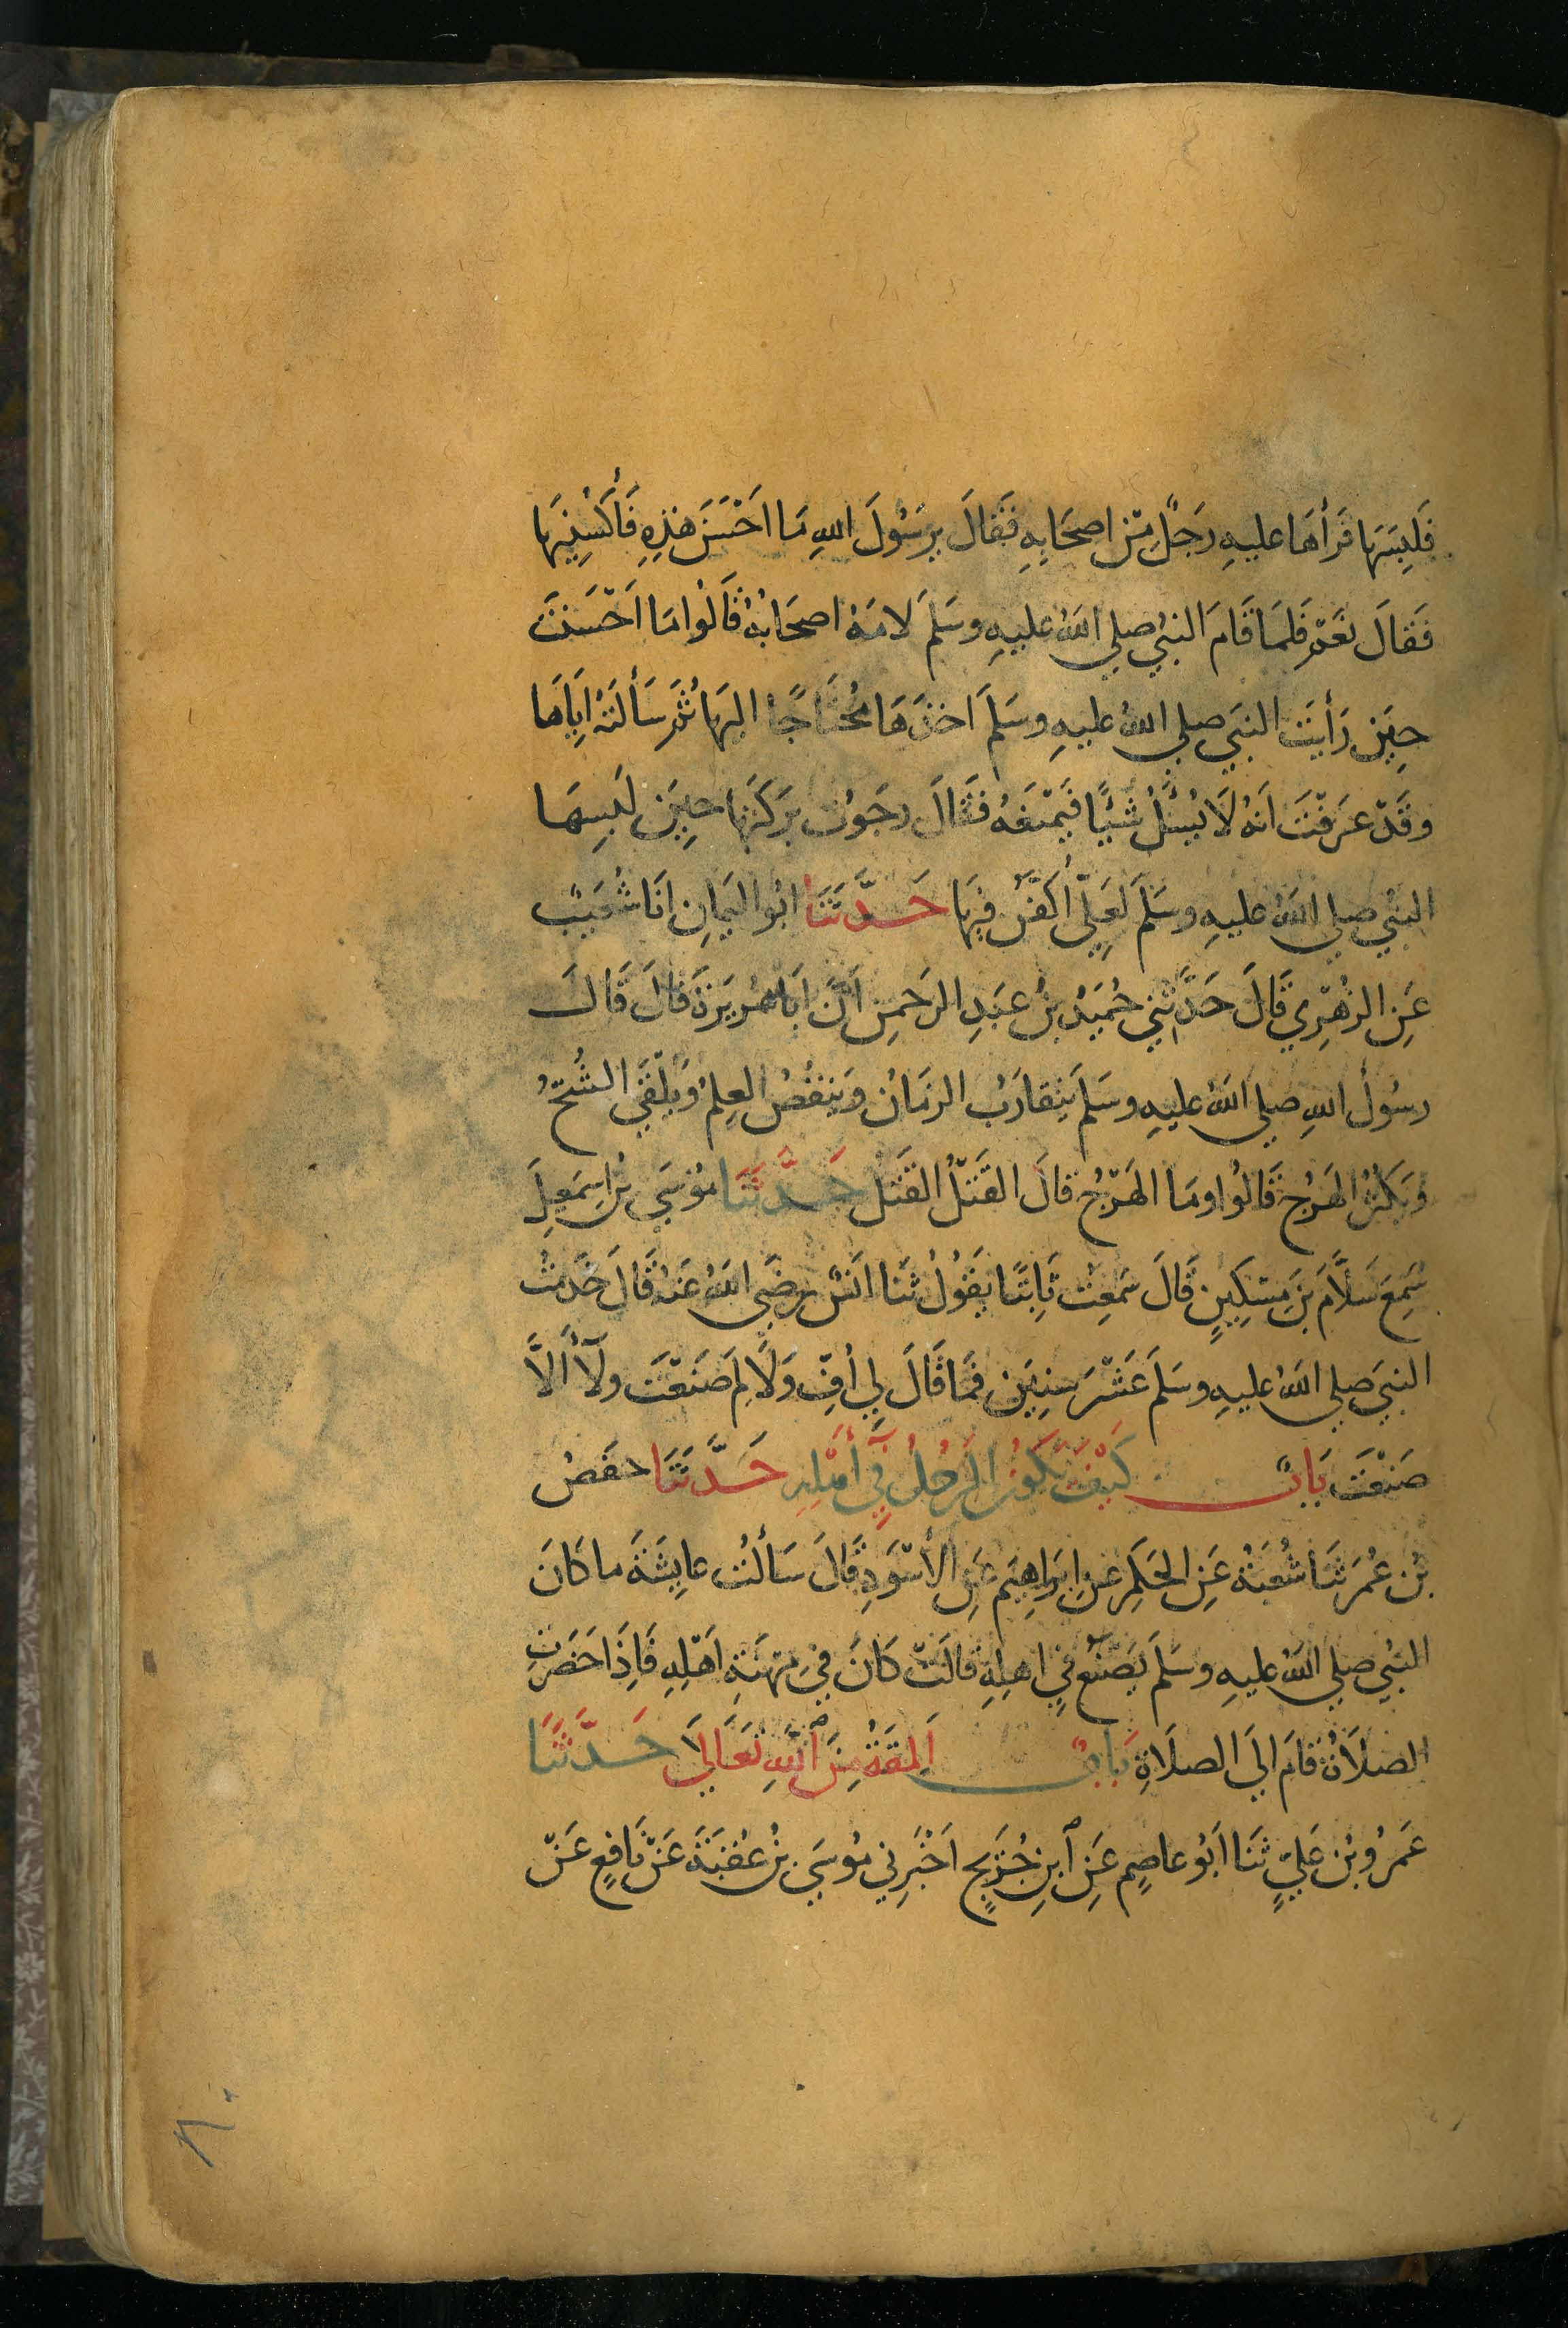 فَلَبِسَهَا فَرَأهَا عليهِ رَجُلٌ مِّنْ اصحَابِهِ فَقَالَ يرَسُولَ اللهِ مَا احْسَنَ هٰذِهِ فَأُكْسُنِيهَا
فَقَالَ نَعَمْ فَلَمَا قَامَ النبيُ صلي اللهُ عليهِ وسَلمَ لامَهُ اصحَابُهُ قَالُوا مَا اَحْسَنْتَ
حِيْنَ رَأيْتَ النبيَ صلي اللهُ عليهِ وسَلمَ اخذَهَا مُحْتَاجًا اليهَا ثُمَ سَألتَهُ اِيَاهَا
وقَدْ عَرَفْتَ اَنهُ لَا يُسْئَلُ شَيْئًا فَيَمْنَعَهُ فَقَالَ رجَوْتُ بَرَكَتَهَا حِيْنَ لَبِسهَا
النبيُ صلي اللهُ عليهِ وسَلمَ لَعَلِّى أُكَفَّنُ فِيهَا حَدَّثَنَا ابُو اليَمَانِ انَا شُعَيْبٌ
عَنِ الزهْرِي قَالَ حَدَّثَنِي حُمَيْدُ بنُ عَبْدِ الرَحمنِ اَنَّ ابَا هُرَيْرَةَ قَالَ قَالَ
رسُولُ اللهِ صلي اللهُ عليهِ وسَلمَ يَتَقارَبُ الزمَانُ وَيَنقُصُ العِلمُ وَيُلْقَي الشُحُّ
وَيَكثُرُ الهَرْجُ قَالُوا ومَا الهَرْجُ قالَ القَتْلُ القَتْل حَدَّثَنَا مُوسَي بْنُ اِسمَعِيلَ
سَمِعَ سَلَّامَ بْنَ مِسْكِيْنٍ قَالَ سَمِعْتُ ثَابِتًا يَقُولُ ثَنَا انَسٌ رضَي اللهُ عَنهُ قَالَ خَدَمْتُ
النبيَ صلي اللهُ عليهِ وسَلمَ عَشْرَ سِنِيْنَ فمَا قَالَ لِي أُفٍّ وَلَا لِمَ صَنَعْتَ ولَآ أَلَّا
صَنَعْتَ بَابٌ كَيْفَ يَكُونُ الرَّجُلُ فِي أَهْلِهِ حَدَّثَنَا حفصُ
بْنُ عُمَرَ ثَنَا شُعْبَةُ عَنِ الحَكَمِ عَن اِبرَاهِيْمَ عَنِ الأسْوَدِ قَالَ سَألتُ عايِشَةَ ما كَانَ
النبيُ صلي اللهُ عليهِ وسَلمَ يَصْنَعُ فِي اهلِهِ قالَتْ كَانَ فِي مِهْنَةِ اَهْلِهِ فَاِذَا حَضَرَتِ
الصلَاةُ قَامَ الَي الصلَاةِ بَابٌ اَلمِقَةُ مِنَ ٱللهِ تَعَالَي حَدَّثَنَا
عَمرُو بْنُ عَلِيٍ ثَنَا ابُو عاصِمٍ عَنِ ٱبنِ جُرَيْجٍ اَخْبَرنِي مُوسَي بْنُ عُقبَةَ عَنْ نَافِعٍ عَنْ
٨٠